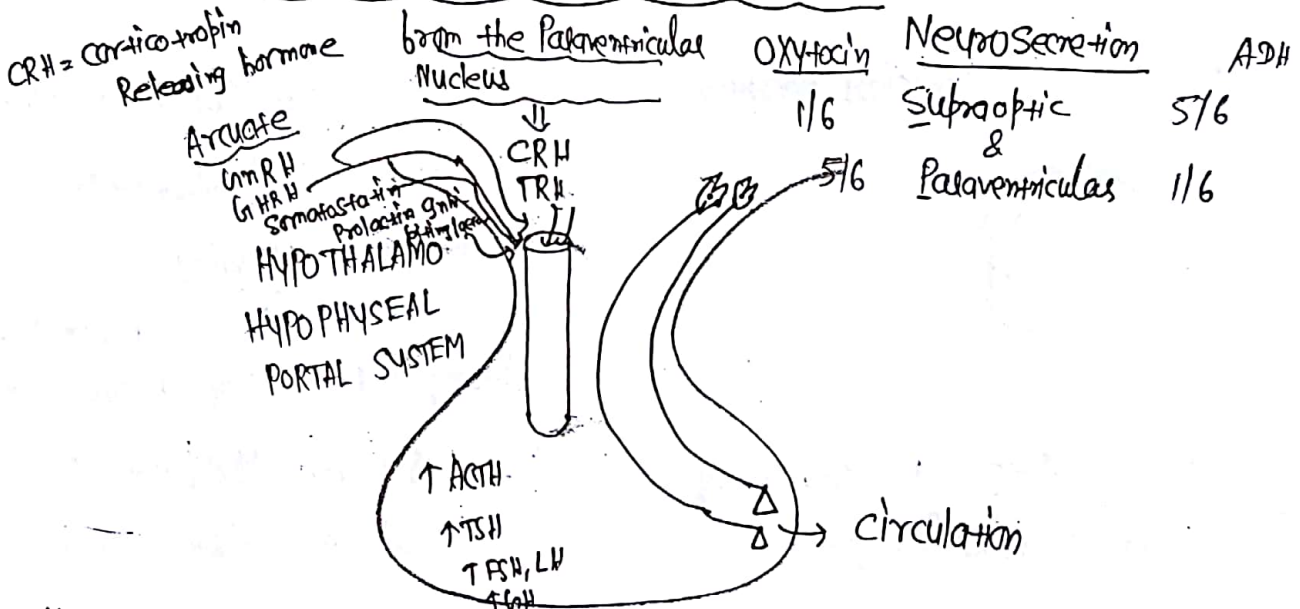 CRH = corticotropin
Releasing hormone
from the Paraventricular
Nucleus
⇓
CRH
TRH
Arcuate
GnRH
GHRH
Somatostatin
Prolactin
HYPOTHALAMO
HYPOPHYSEAL
PORTAL SYSTEM
OXytocin Neurosecretion ADH
1/6 Supraoptic 5/6
&
5/6 Paraventricular 1/6
↑ ACTH
↑ TSH
↑ FSH, LH
↑ GH
→ circulation